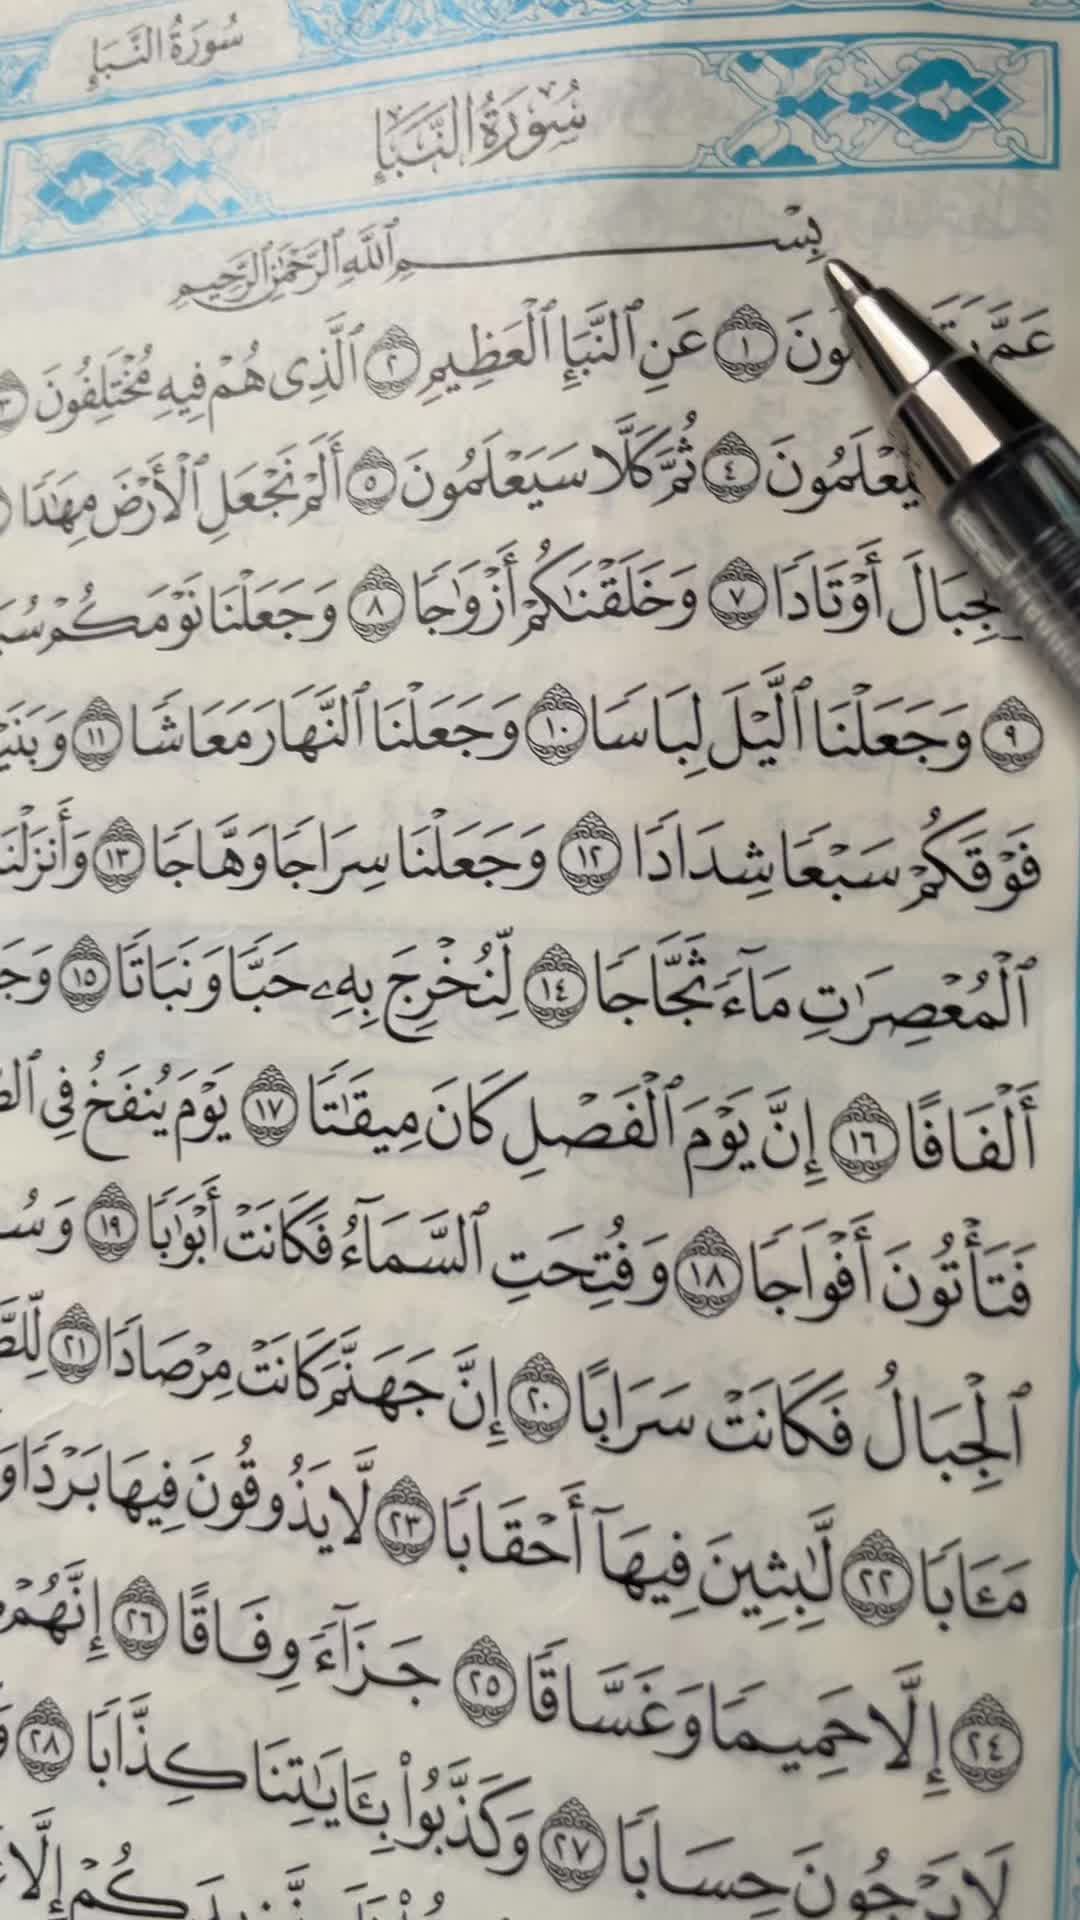 سُورَةُ النَّبَإِ
سُورَةُ النَّبَإِ
بِسْمِ ٱللَّهِ ٱلرَّحْمَٰنِ ٱلرَّحِيمِ
عَمَّ ۝١ عَنِ ٱلنَّبَإِ ٱلْعَظِيمِ ۝٢ ٱلَّذِى هُمْ فِيهِ مُخْتَلِفُونَ ۝٣
۝٤ ثُمَّ كَلَّا سَيَعْلَمُونَ ۝٥ أَلَمْ نَجْعَلِ ٱلْأَرْضَ مِهَٰدًا
أَوْتَادًا ۝٧ وَخَلَقْنَٰكُمْ أَزْوَٰجًا ۝٨ وَجَعَلْنَا نَوْمَكُمْ
۝٩ وَجَعَلْنَا ٱلَّيْلَ لِبَاسًا ۝١٠ وَجَعَلْنَا ٱلنَّهَارَ مَعَاشًا ۝١١
فَوْقَكُمْ سَبْعًا شِدَادًا ۝١٢ وَجَعَلْنَا سِرَاجًا وَهَّاجًا ۝١٣ وَأَنزَلْنَا
ٱلْمُعْصِرَٰتِ مَآءً ثَجَّاجًا ۝١٤ لِّنُخْرِجَ بِهِۦ حَبًّا وَنَبَاتًا ۝١٥
أَلْفَافًا ۝١٦ إِنَّ يَوْمَ ٱلْفَصْلِ كَانَ مِيقَٰتًا ۝١٧ يَوْمَ يُنفَخُ فِى
فَتَأْتُونَ أَفْوَاجًا ۝١٨ وَفُتِحَتِ ٱلسَّمَآءُ فَكَانَتْ أَبْوَٰبًا ۝١٩
ٱلْجِبَالُ فَكَانَتْ سَرَابًا ۝٢٠ إِنَّ جَهَنَّمَ كَانَتْ مِرْصَادًا ۝٢١
مَـَٔابًا ۝٢٢ لَّٰبِثِينَ فِيهَآ أَحْقَابًا ۝٢٣ لَّا يَذُوقُونَ فِيهَا بَرْدًا
۝٢٤ إِلَّا حَمِيمًا وَغَسَّاقًا ۝٢٥ جَزَآءً وِفَاقًا ۝٢٦ إِنَّهُمْ
لَا يَرْجُونَ حِسَابًا ۝٢٧ وَكَذَّبُوا۟ بِـَٔايَٰتِنَا كِذَّابًا ۝٢٨
إِلَّا